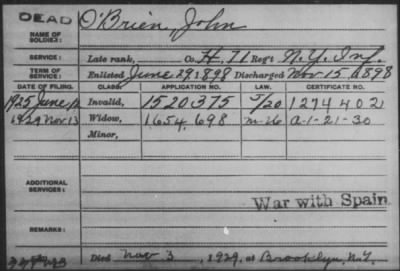 DEAD
O'Brien, John
NAME OF SOLDIER:
SERVICE: Late rank, Co. H, 71 Reg't N.Y. Inf.
TERM OF SERVICE: Enlisted June 29 1898 Discharged Nov 15, 1898
DATE OF FILING. CLASS. APPLICATION NO. LAW. CERTIFICATE NO.
1925 June 12 Invalid, 1520,375 J/20 1274402
1929 Nov. 13 Widow, 1654,698 m-26 a-1-21-30
Minor,
ADDITIONAL SERVICES:
War with Spain
REMARKS:
Died Nov 3, 1929, at Brooklyn, N.Y.